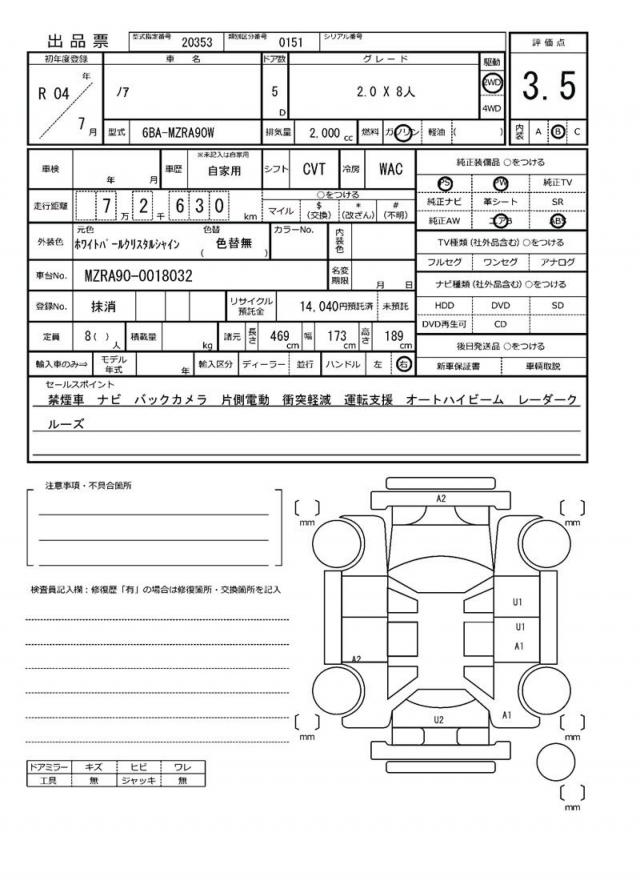 出品票 型式指定番号 20353 類別区分番号 0151 シリアル番号
評価点
3.5
内装 A B C
初年度登録 車名 ドア数 グレード 駆動
R 04 年 7 月
ノア 5 D 2.0 X 8人 2WD 4WD
型式 6BA-MZRA90W 排気量 2,000 cc 燃料 ガソリン 軽油 ( )
車検 年 月 車歴 ※未記入は自家用 自家用 シフト CVT 冷房 WAC
走行距離 7 万 2 千 6 3 0 km
○をつける
マイル $ (交換) * (改ざん) # (不明)
外装色 元色 ホワイトパールクリスタルシャイン 色替 ( 色替無 ) カラーNo. 内装色
車台No. MZRA90-0018032 名変期限 月 日
登録No. 抹消 リサイクル預託金 14,040円預託済 未預託
定員 8( )人 積載量 kg 諸元 長さ 469 cm 幅 173 cm 高さ 189 cm
輸入車のみ⇒ モデル年式 年 輸入区分 ディーラー 並行 ハンドル 左 右
純正装備品 ○をつける
PS PW 純正TV
純正ナビ 革シート SR
純正AW エアB ABS
TV種類 (社外品含む) ○をつける
フルセグ ワンセグ アナログ
ナビ種類 (社外品含む) ○をつける
HDD DVD SD
DVD再生可 CD
後日発送品 ○をつける
新車保証書 車輌取説
セールスポイント
禁煙車 ナビ バックカメラ 片側電動 衝突軽減 運転支援 オートハイビーム レーダーク
ルーズ
注意事項・不具合箇所
検査員記入欄：修復歴「有」の場合は修復箇所・交換箇所を記入
ドアミラー キズ ヒビ ワレ
工具 無 ジャッキ 無
A2
mm mm
U1
U1
A1
A2
U2
A1
mm mm
mm